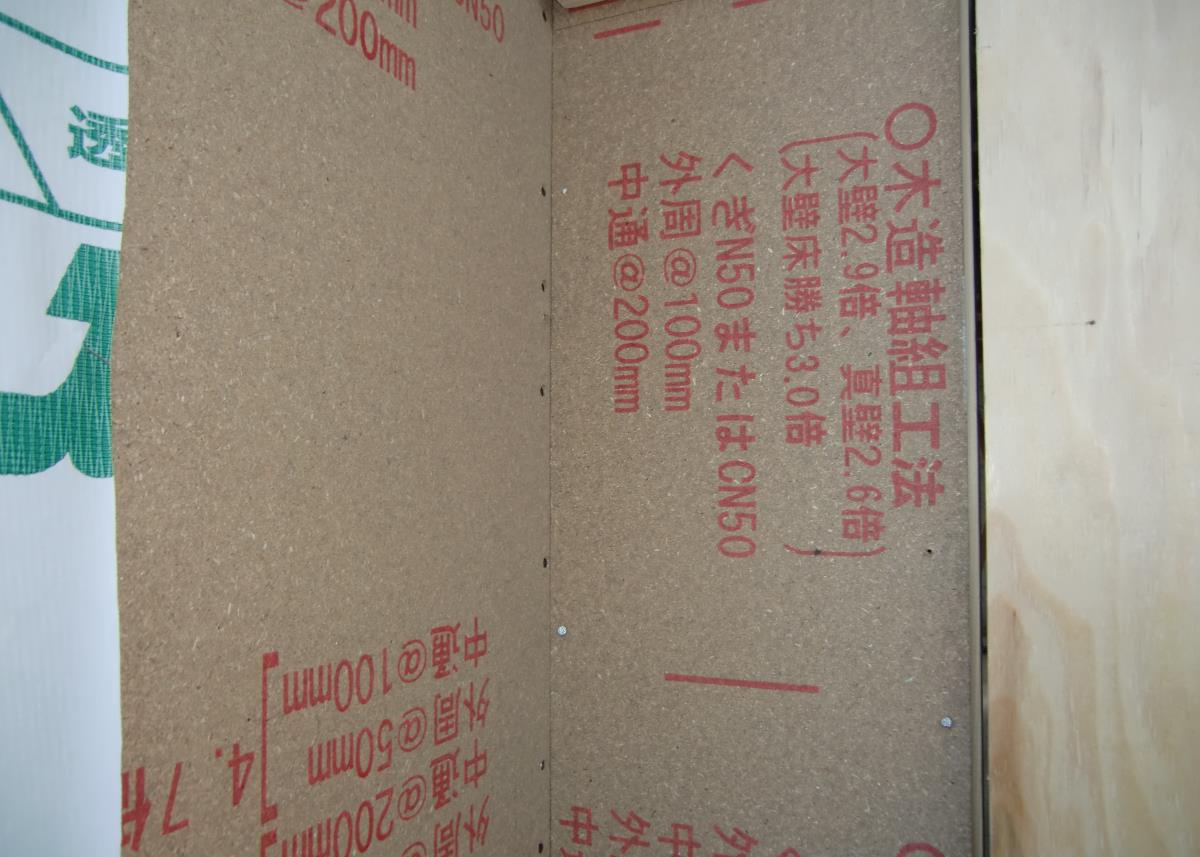 ○木造軸組工法
(大壁2.9倍、真壁2.6倍
大壁床勝ち3.0倍)
くぎN50またはCN50
外周@100mm
中通@200mm
CN50
mm
@200mm
中通@100mm
外周@50mm
4.7倍
中通@200mm
外周
外
中
外
中
透